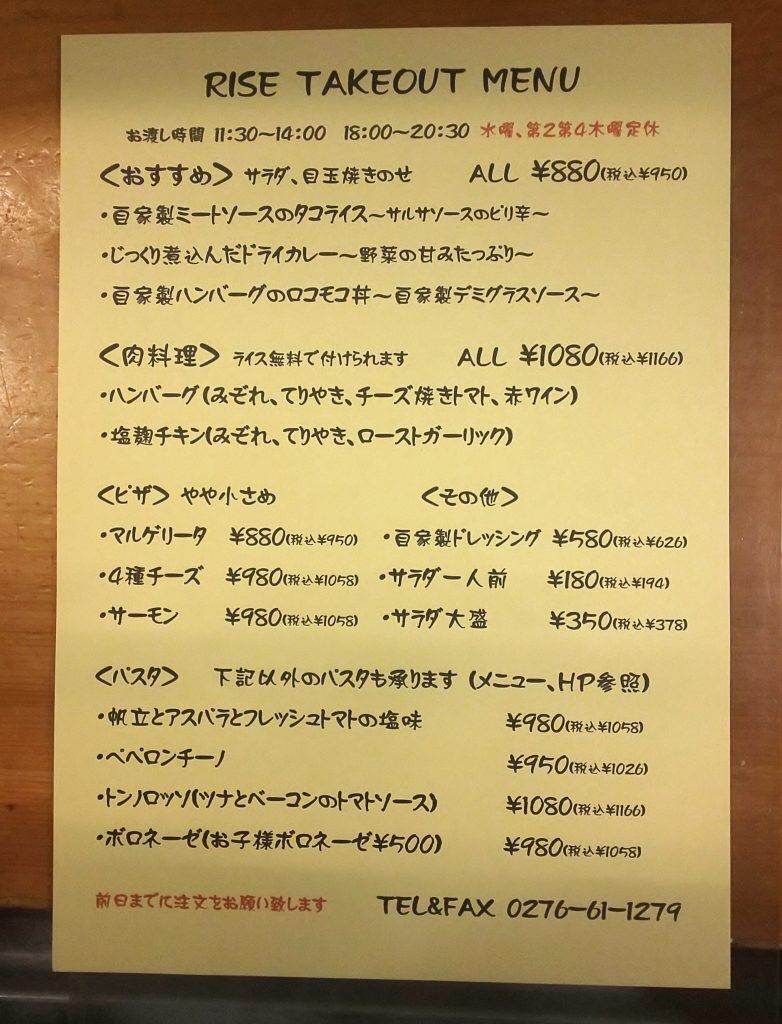 RISE TAKEOUT MENU
お渡し時間 11:30〜14:00 18:00〜20:30 水曜、第2第4木曜定休
<おすすめ> サラダ、目玉焼きのせ ALL ¥880(税込¥950)
・自家製ミートソースのタコライス〜サルサソースのピリ辛〜
・じっくり煮込んだドライカレー〜野菜の甘みたっぷり〜
・自家製ハンバーグのロコモコ丼〜自家製デミグラスソース〜
<肉料理> ライス無料で付けられます ALL ¥1080(税込¥1166)
・ハンバーグ(みぞれ、てりやき、チーズ焼きトマト、赤ワイン)
・塩麹チキン(みぞれ、てりやき、ローストガーリック)
<ピザ> やや小さめ
・マルゲリータ ¥880(税込¥950)
・4種チーズ ¥980(税込¥1058)
・サーモン ¥980(税込¥1058)
<その他>
・自家製ドレッシング ¥580(税込¥626)
・サラダ一人前 ¥180(税込¥194)
・サラダ大盛 ¥350(税込¥378)
<パスタ> 下記以外のパスタも承ります (メニュー、HP参照)
・帆立とアスパラとフレッシュトマトの塩味 ¥980(税込¥1058)
・ペペロンチーノ ¥950(税込¥1026)
・トンノロッソ(ツナとベーコンのトマトソース) ¥1080(税込¥1166)
・ボロネーゼ(お子様ボロネーゼ¥500) ¥980(税込¥1058)
前日までに注文をお願い致します TEL&FAX 0276-61-1279